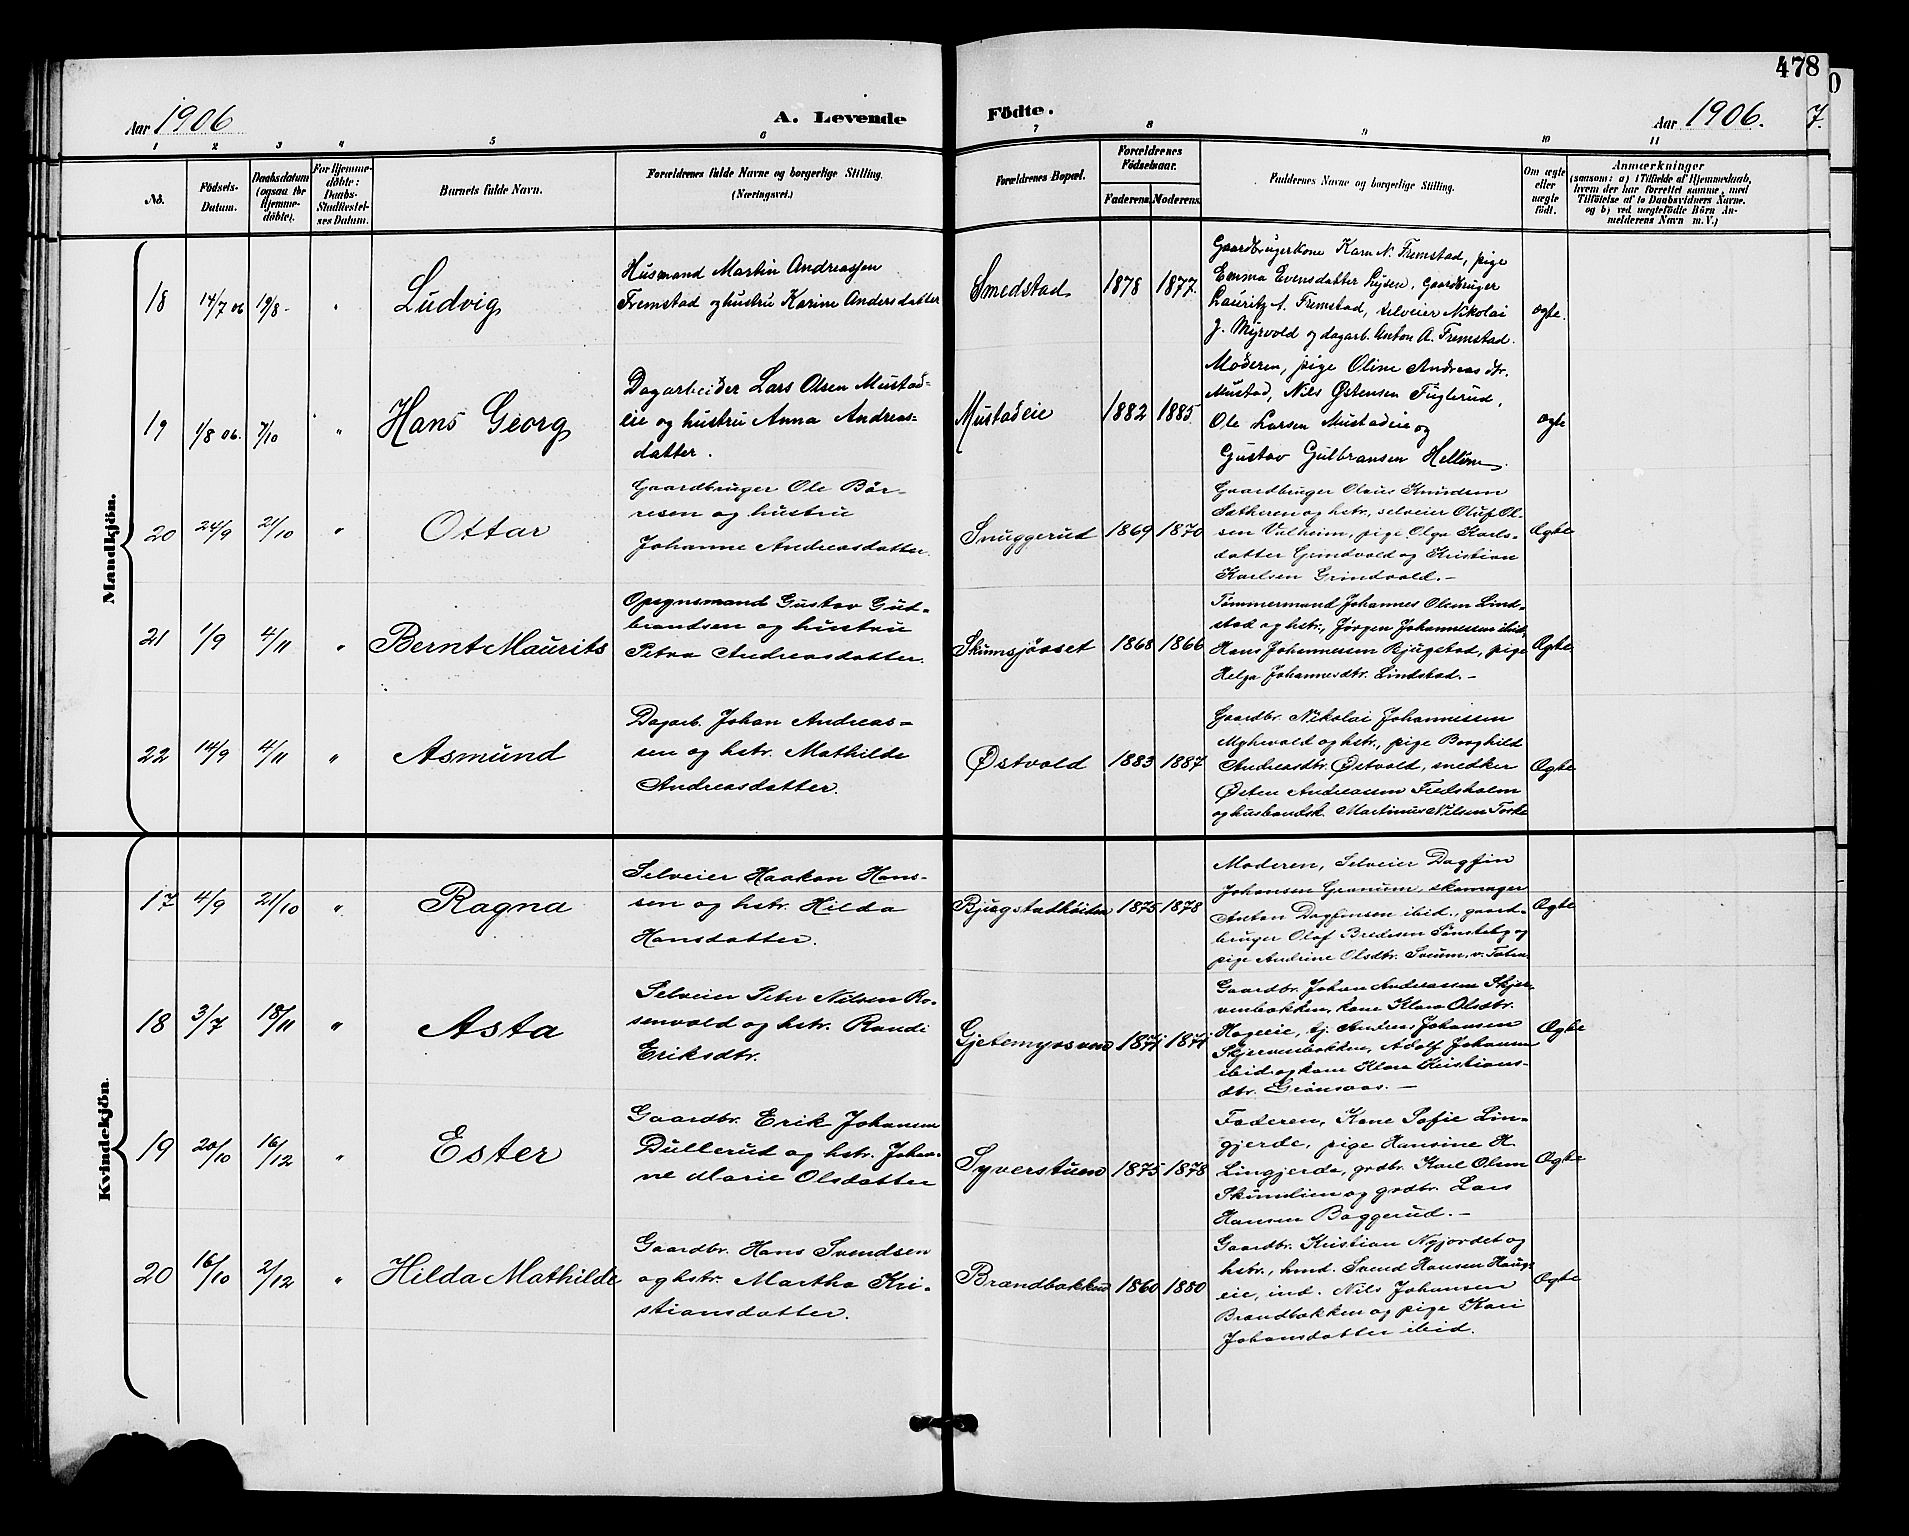 478
Aar 1906
A. Levende
Födte.
Aar 1906.
7.
1 2 3 4 5 6 7 8 9 10 11
No.
Födsels-
Datum.
Daabsdatum
(ogsaa for
Hjemme-
döbte).
For Hjemme-
döbte:
Daabs-
Stadfæstel-
ses Datum.
Barnets fulde Navn.
Forældrenes fulde Navne og borgerlige Stilling.
(Næringsvei.)
Forældrenes Bopæl.
Forældrenes
Födselsaar.
Faderens. Moderens.
Faddernes Navne og borgerlige Stilling.
Om ægte
eller
uægte
født.
Anmærkninger
(saasom: a) i Tilfælde af Hjemmedaab,
hvem der har forrettet samme, med
Tilföielse af to Daabsvidners Navne.
og b) ved uægtefödte Börn An-
melderens Navn m. V.)
Mandkjön.
18 14/7 06 19/8 - " Ludvig
Husmand Martin Andreassen
Fremstad og hustru Karine Andersdatter
Smedstad 1878 1877.
Gaardbrugerkone Karn N. Fremstad, pige
Emma Evensdatter Lysen, Gaardbruger
Lauritz A. Fremstad, selveier Nikolai
J. Myrvold og dagarb. Anton A. Fremstad.
ægte.
19 1/8 06. 7/10 " Hans Georg
Dagarbeider Lars Olsen Mustad-
eie og hustru Anna Andreas-
datter.
Mustadeie 1882 1885.
Moderen, pige Oline Andreasdtr.
Mustad, Nils Østensen Fuglerud,
Ole Larsen Mustadeie og
Gustav Gulbransen Hellum.
ægte
20 24/9 21/10 " Ottar
Gaardbruger Ole Bör-
resen og hustru
Johanne Andreasdatter.
Snuggerud 1869 1870
Gaardbruger Olaus Knudsen
Sætheren og hstr., selveier Oluf Ol-
sen Valheim, pige Olga Karls-
datter Grindvold og Kristian
Karlsen Grindvold. -
Ægte
21 1/9 4/11 " Bernt Maurits
Opsynsmand Gustav Gud-
brandsen og hustru
Petra Andreasdatter.
Skumsjöoset 1868 1866
Tømmermand Johannes Olsen Lind-
stad og hstr., Jørgen Johannessen ibid.
Hans Johannessen Bjugstad, pige
Helga Johannesdtr. Lindstad. -
Ægte
22 14/9 4/11 " Asmund
Dagarb. Johan Andreas-
sen og hstr. Mathilde
Andreasdatter.
Østvold 1883 1887
Gaardbr. Nikolai Johannessen
Myhrvold og hstr., pige Borghild
Andreasdtr. Østvold, snedker
Østen Andreassen Fredsholm
og husbondsk. Martinus Nilsen Torke
Ægte
Kvindekjön.
17 4/9 21/10 " Ragna
Selveier Haakon Han-
sen og hstr. Hilda
Hansdatter.
Bjugstadhöiden 1875 1878
Moderen, Selveier Dagfin
Johansen Granum, skomager
Anton Dagfinsen ibid., gaard-
bruger Olaf Bredesen Sønsteby og
pige Andrine Olsdtr. Sveum, v. Toten.
Ægte
18 3/7 18/11 " Asta
Selveier Peter Nilsen Ro-
senvold og hstr. Randi
Eriksdtr.
Gjetemyrsven 1874 1874
Gaardbr. Johan Andreassen Skjer-
venbakken, kone Klara Olsdtr.
Hageeie, tj. Anders Johansen
Skjervenbakken, Adolf Johansen
ibid. og kone Klara Kristians-
dtr. Grønsaas. -
Ægte
19 20/10 16/12 " Ester
Gaardbr. Erik Johansen
Dullerud og hstr. Johan-
ne Marie Olsdatter
Syverstuen 1875 1878
Faderen, Kone Sofie Lin-
gjerde, pige Hansine H.
Lingjerde, grdbr. Karl Olsen
Skumlien og grdbr. Lars
Hansen Baggerud. -
Ægte
20 16/10 2/12 " Hilda Mathilde
Gaardbr. Hans Svendsen
og hstr. Martha Kri-
stiansdatter.
Brandbakken 1860 1880
Gaardbr. Kristian Nyjordet og
hstr., hmd. Svend Hansen Haugs-
eie, ind. Nils Johansen
Brandbakken og pige Kari
Johansdatter ibid.
Ægte